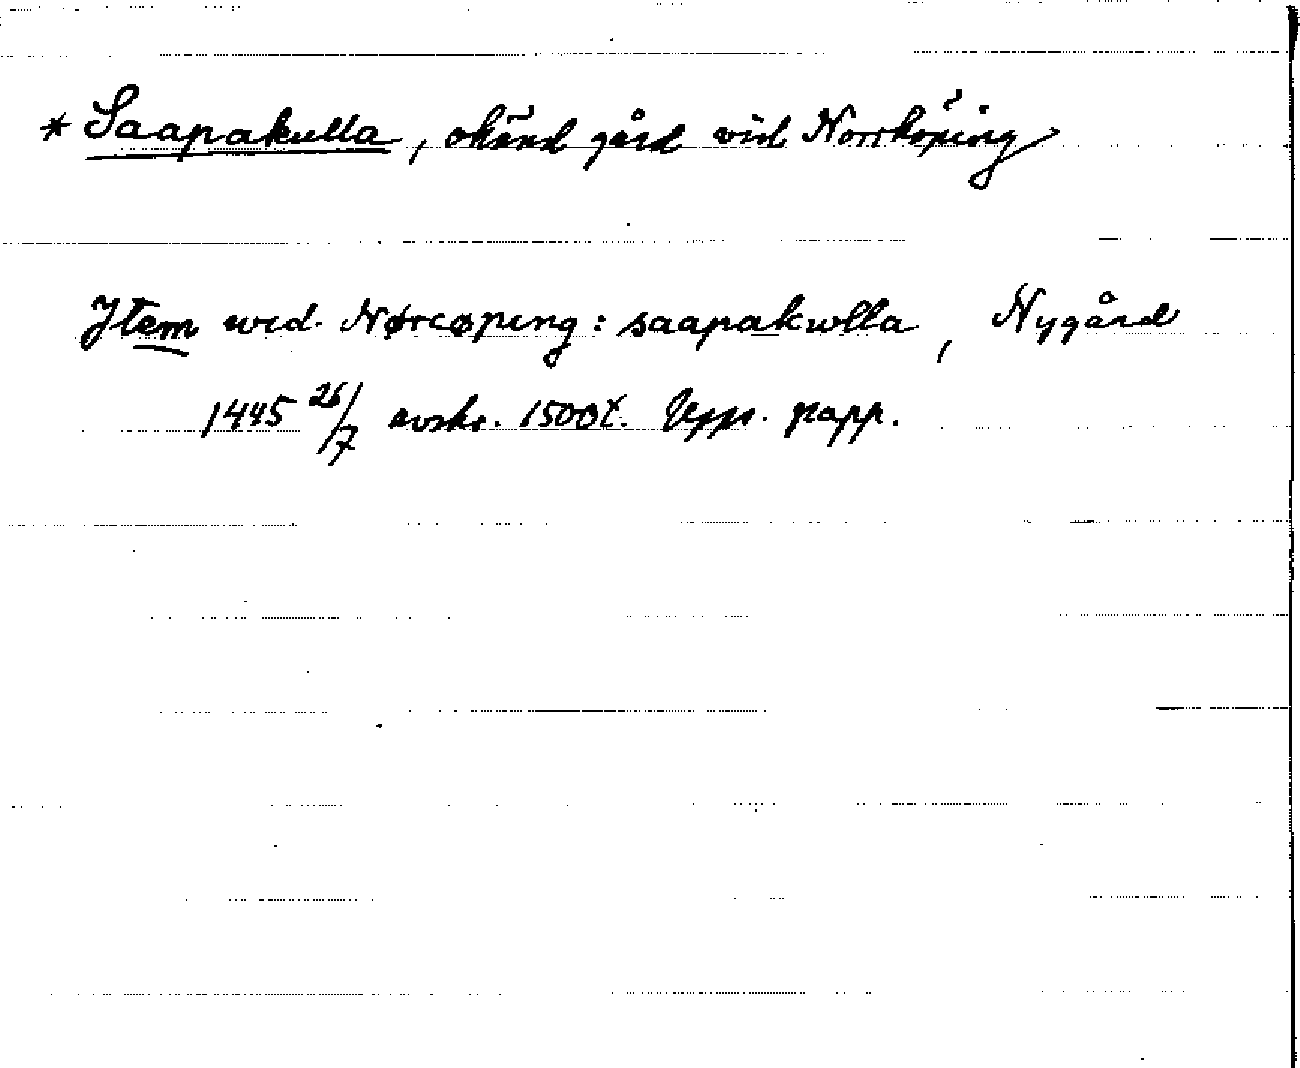 * Saapakulla, okänd gård vid Norrköping
Item wid Nørcøping: saapakwlla, Nygård
1445 26/7 avskr. 1500t. Upps. papp.